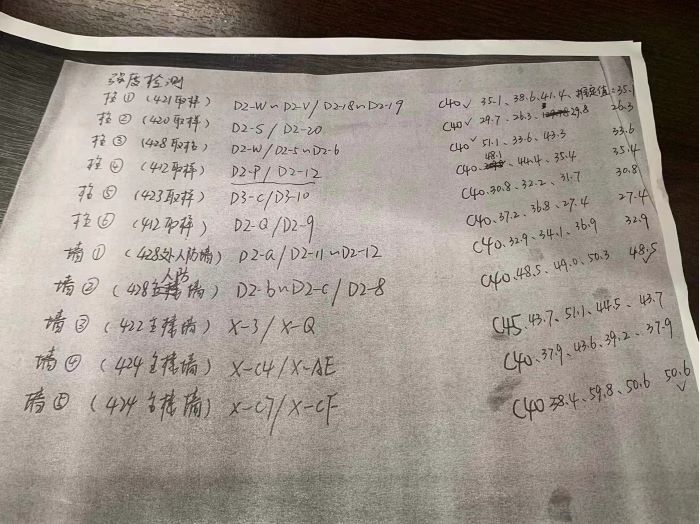 强度检测
柱① (421取样) D2-W~D2-V/D2-18~D2-19 C40√ 35.1、38.6、41.4、推定值:35.1
柱② (420取样) D2-S/D2-20 C40√ 29.7、26.3、29.8 26.3
柱③ (428取样) D2-W/D2-5~D2-6 C40√ 51.1、33.6、43.3 33.6
柱④ (412取样) D2-P/D2-12 C40、48.1、44.4、35.4 35.4
柱⑤ (423取样) D3-C/D3-10 C40、30.8、32.2、31.7 30.8
柱⑥ (412取样) D2-Q/D2-9 C40、37.2、36.8、27.4 27.4
墙① (428外人防墙) D2-a/D2-11~D2-12 C40、32.9、34.1、36.9 32.9
墙② (428人防墙) D2-b~D2-c/D2-8 C40、48.5、49.0、50.3 48.5√
墙③ (422主楼墙) X-3/X-Q C45、43.7、51.1、44.5、43.7
墙④ (424主楼墙) X-C4/X-AE C40、37.9、43.6、39.2、37.9
墙⑤ (424主楼墙) X-C7/X-CF C40 38.4、59.8、50.6 50.6√